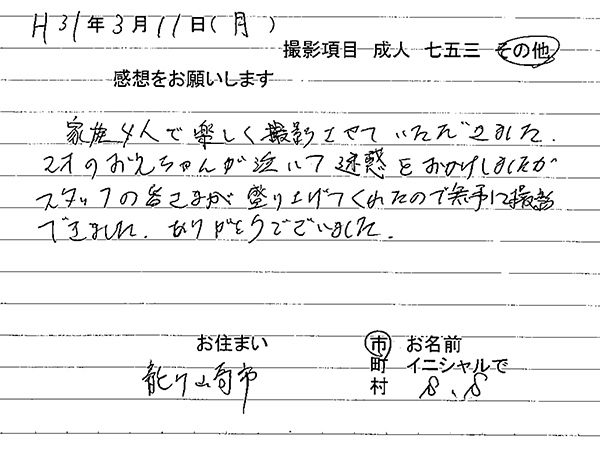 H31年3月11日(月)
撮影項目 成人 七五三 その他
感想をお願いします
家族4人で楽しく撮影させていただきました.
2才のお兄ちゃんが泣いて迷惑をおかけしましたが
スタッフの皆さまが盛り上げてくれたので無事に撮影
できました. ありがとうございました.
お住まい 市 お名前
町 イニシャルで
龍ケ崎市 村 S.S